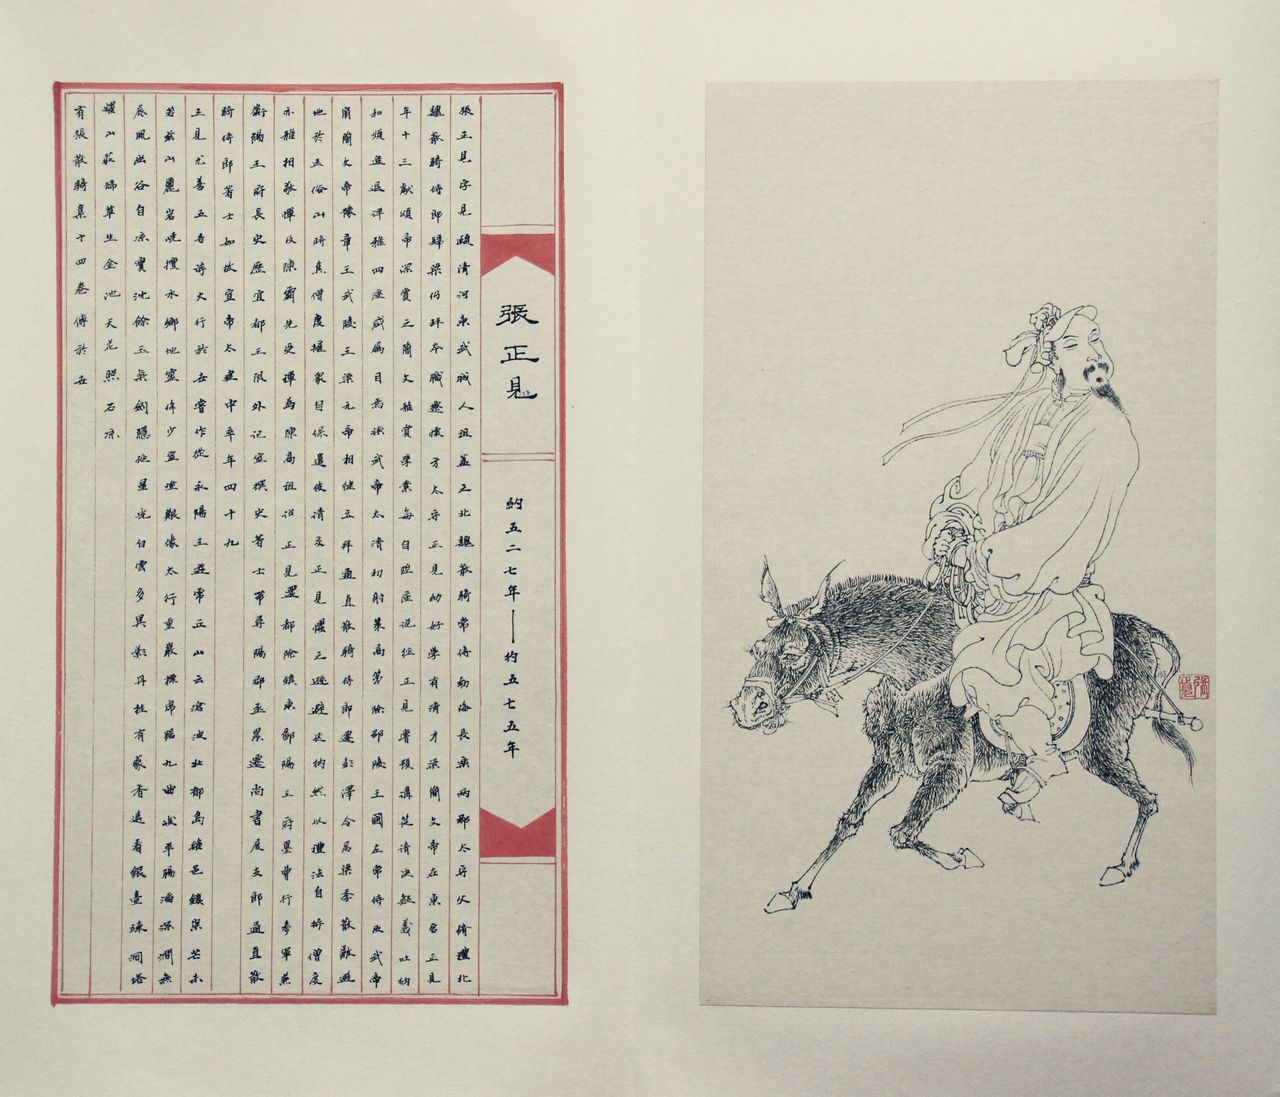 張正見
約五二七年——約五七五年
張正見字見頤清河東武城人祖蓋之北魏散騎常侍勃海長樂兩郡太守父脩禮北
魏散騎侍郎歸梁仍拜本職遷懷方太守正見幼好學有清才梁簡文帝在東宮正見
年十三獻頌帝深賞之簡文雅賞學業每自陞座說經正見嘗預講筵請決疑義吐納
和順進退詳雅四座咸屬目焉梁武帝太清初射策高第除邵陵王國左常侍及武帝
崩簡文帝豫章王武陵王梁元帝相繼立拜通直散騎侍郎遷彭澤令屬梁季散亂避
地於匡俗山時焦僧度擁衆自保遣使請交正見懼之遜避延納然以禮法自持僧度
亦雅相敬憚及陳霸先受禪為陳高祖詔正見還都除鎮東鄱陽王府墨曹行參軍兼
衡陽王府長史歷宜都王限外記室撰史著士帶尋陽郡丞累遷尚書度支郎通直散
騎侍郎著士如故宣帝太建中卒年四十九
正見尤善五言詩大行於世嘗作從永陽王遊虎丘山云滄波壯郁島雒邑鎮崇芒未
若茲山麗岩嶢擅水鄉地靈侔少室塗艱像太行重巖標虎踞九曲峻羊腸溜深澗無
底風幽谷自涼寶沈餘玉氣劍隱絕星光白雲多異影丹桂有藂香遠看銀臺竦洞塔
耀山莊瑞草生金池天花照石涼
有張散騎集十四卷傳於世